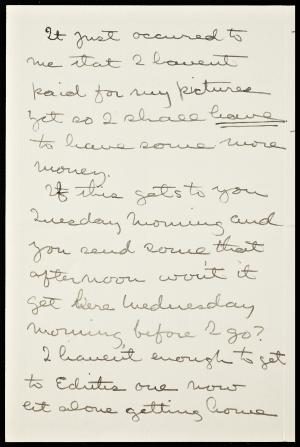 It just occured to
me that I havent
paid for my pictures
yet so I shall have
to have some more
money.
If this gets to you
Tuesday morning and
you send some that
afternoon won't it
get here Wednesday
morning, before I go?
I haven't enough to get
to Ediths one now
let alone getting home